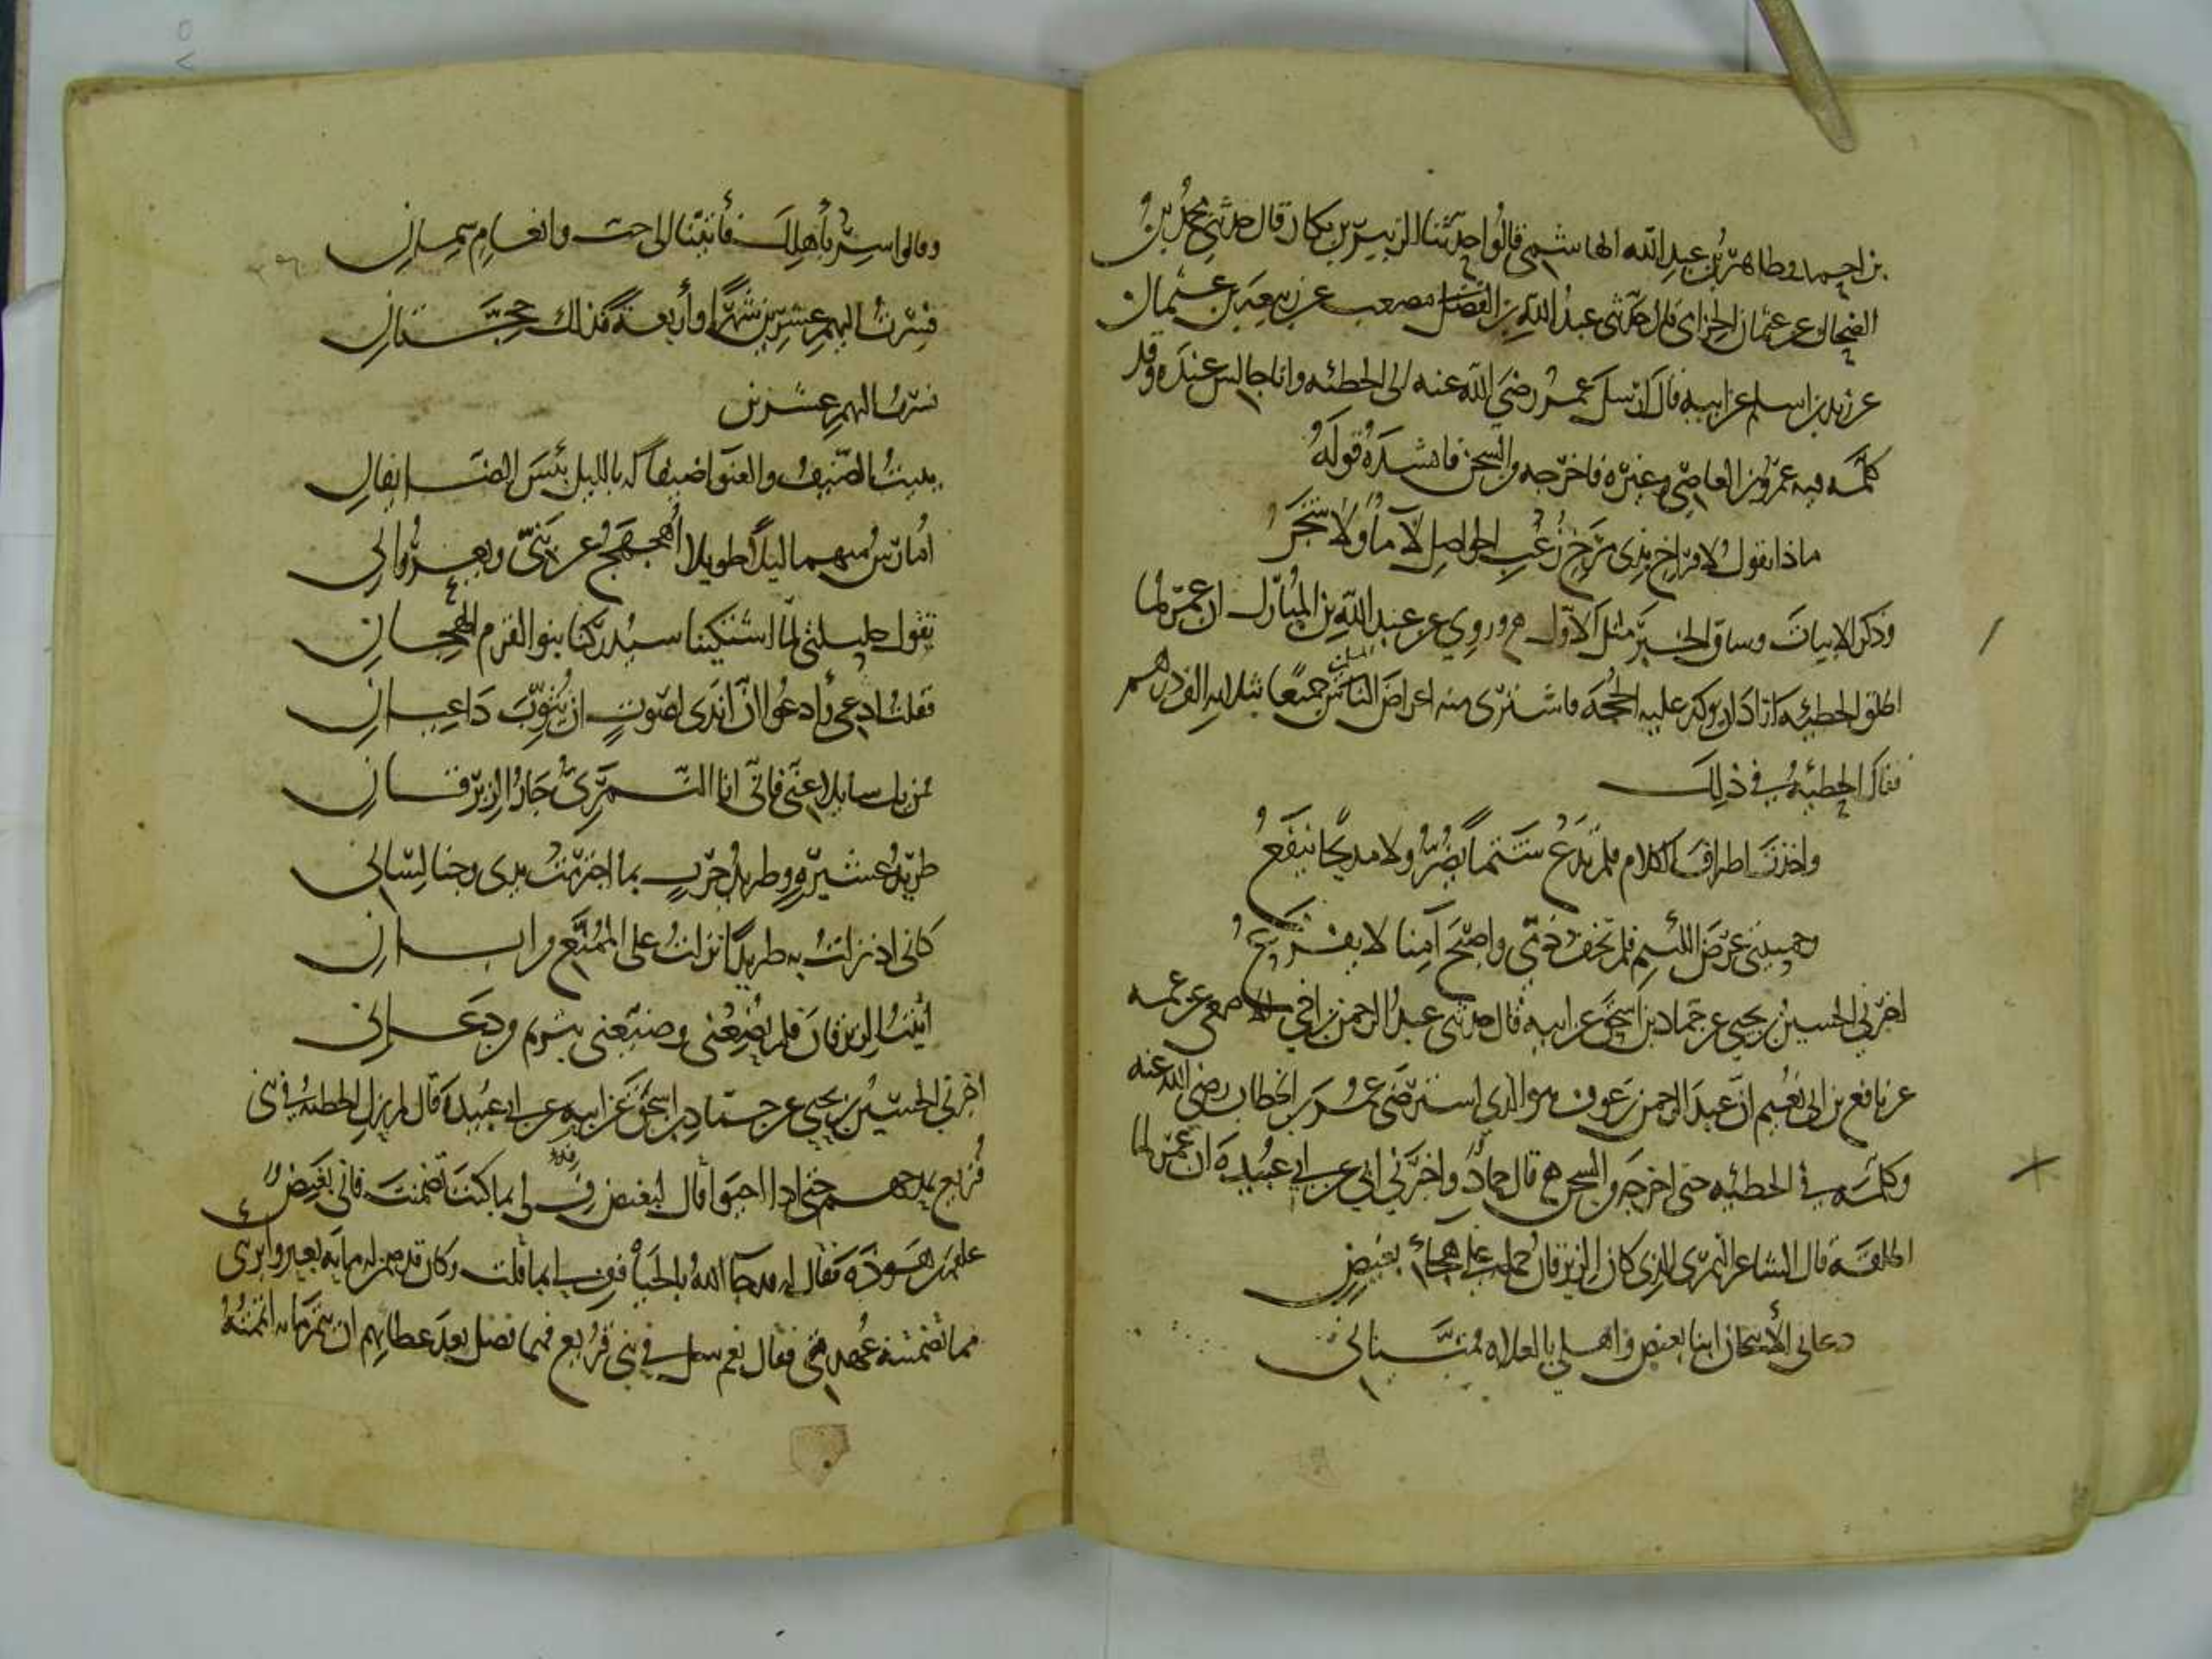 بن احمد وطاهر بن عبد الله الهاشمي قالوا حدثنا الزبير بن بكار قال حدثني محمد بن
الضحاك عن عثمان الحزامي قال حدثني عبد الله بن مصعب عن ربيعة بن عثمان
عن زيد بن اسلم عن ابيه قال ارسل عمر رضي الله عنه الى الحطيئه وانا جالس عنده وقد
كلمه فيه عمرو بن العاصي وغيره فاخرجه من السجن فانشده قوله
ماذا تقول لافراخ بذي مرخ زغب الحواصل لا ماء ولا شجر
وذكر الابيات وساق الخبر مثل الاول وروي عن عبد الله بن المبارك ان عمر لما
اطلق الحطيئه اراد ان يوكد عليه الحجه فاشترى منه اعراض المسلمين جميعا بثلاثه الف درهم
فقال الحطيئة في ذلك
واخذت اطراف الكلام فلم تدع شتما يضر ولا مديحا ينفع
وحميتني عرض اللئيم فلم يخف ذمي واصبح آمنا لا يفزع
اخبرني الحسين بن يحيى عن حماد بن اسحق عن ابيه قال حدثني عبد الرحمن بن اخي الاصمعي عن عمه
عن نافع بن ابي نعيم ان عبد الرحمن بن عوف هو الذي استرضى عمر بن الخطاب رضي الله عنه
وكلمه في الحطيئه حتى اخرجه من السجن قال حماد واخبرني ابي عن ابي عبيدة ان عمر لما
اطلقه قال الشاعر النمري الذي كان الزبرقان حمله على هجاء بغيض
دعاني الأثبجان ابنا بغيض واهلي بالعلاة فمنياني
وقالوا سر بأهلك فأتينا الى حب وانعام سمان
فسرت اليهم عشرين شهرا وأربعة فذلك حجتان
فسرت اليهم عشرين
يبيت الضيف والعنوا ضيفا له بالليل بئس الضايفان
أمارس منهما ليلا طويلا أهجهج عن بني ويعروان
تقول حليلتي لما اشتكينا سيدركنا بنو القرم الهجان
فقلت ادعي وأدعو ان اندى لصوت ان ينوب داعيان
فمن يك سايلا عني فاني انا النمري جار الزبرقان
طريد عشيرة وطريد حرب بما اجترمت يدي وجنا لساني
كاني اذ نزلت به طريدا نزلت على الممنع من ابان
أتيت الزبرقان فلم يضعني وضيعني بتريم من دعاني
اخبرني الحسين بن يحيى عن حماد بن اسحق عن ابيه عن ابي عبيدة قال لم يزل الحطيئة في بني
قريع يمدحهم حتى اذا احيوا قال لبغيض ف لي بما كنت تضمنت فاتى بغيض
علقمة بن هوذة فقال له قد جا الله بالحيا ففي لي بما قلت وكان قد ضمن له مايه بعير وابرني
مما تضمنته عهدتي فقال نعم سل في بني قريع فمهما فضل بعد عطايهم ان يتم مايه اتممته